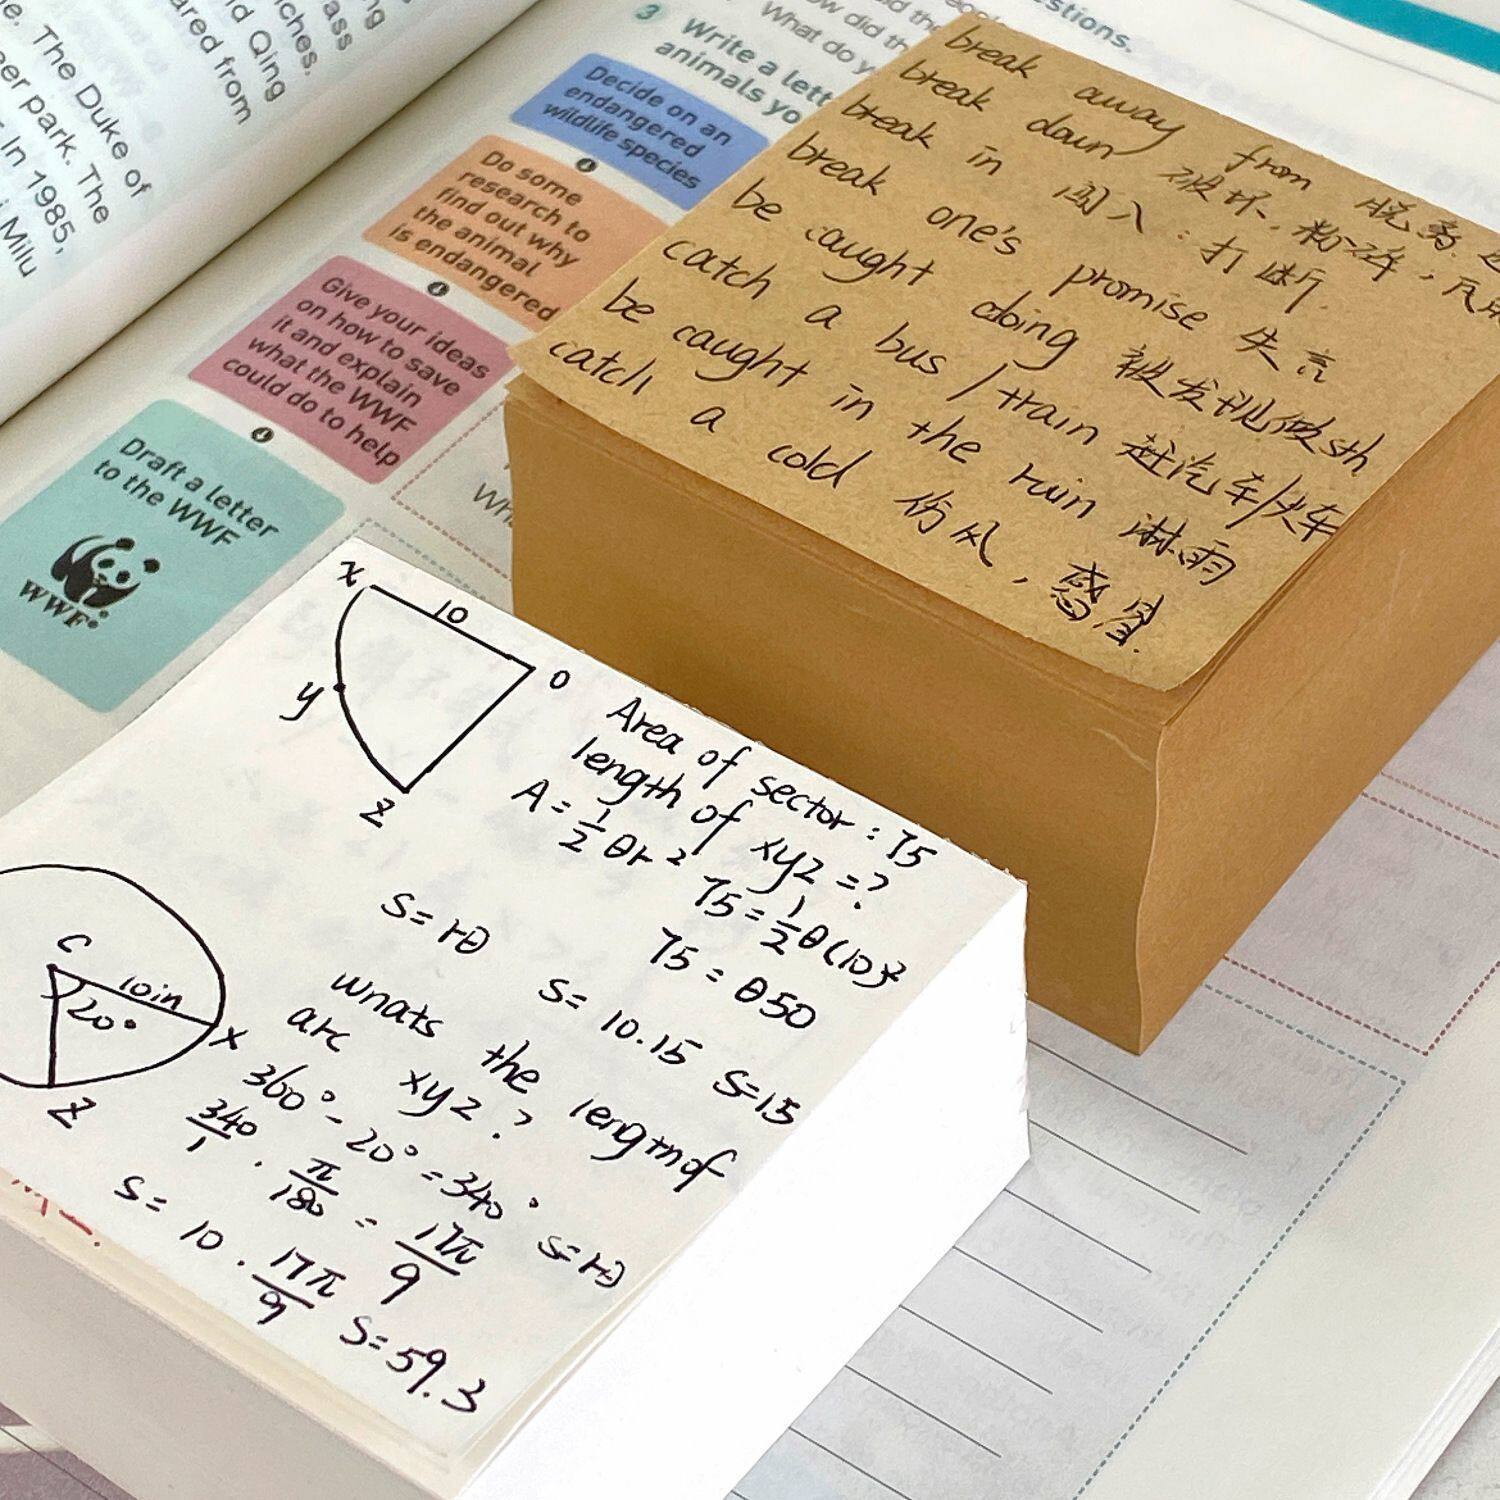 e. The Duke of
eer park. The
In 1985,
Milu
nd Qing
iches.
ared from
3 Write a lett
animals yo
What do y
estions.
Decide on an
endangered
wildlife species
Do some
research to
find out why
the animal
is endangered
Give your ideas
on how to save
it and explain
what the WWF
could do to help
Draft a letter
to the WWF
WWF®
break away from 脱离
break down 破坏,粉碎,
break in 闯入:打断.
break one's promise 失言
be caught doing 被发现做sth
catch a bus / train 赶汽车/火车
be caught in the rain 淋雨
catch a cold 伤风,感冒.
x
10
O
y
z
Area of sector: 75
length of xyz=?
A=1/2 θr²
75=1/2 θ(10)²
75=θ50
s=rθ
s=10.15 s=15
C
10in
20°
x
z
whats the length of
arc xyz?
360°-20°=340° s=rθ
340/1 · π/180 = 17π/9
s= 10 · 17π/9 s=59.3